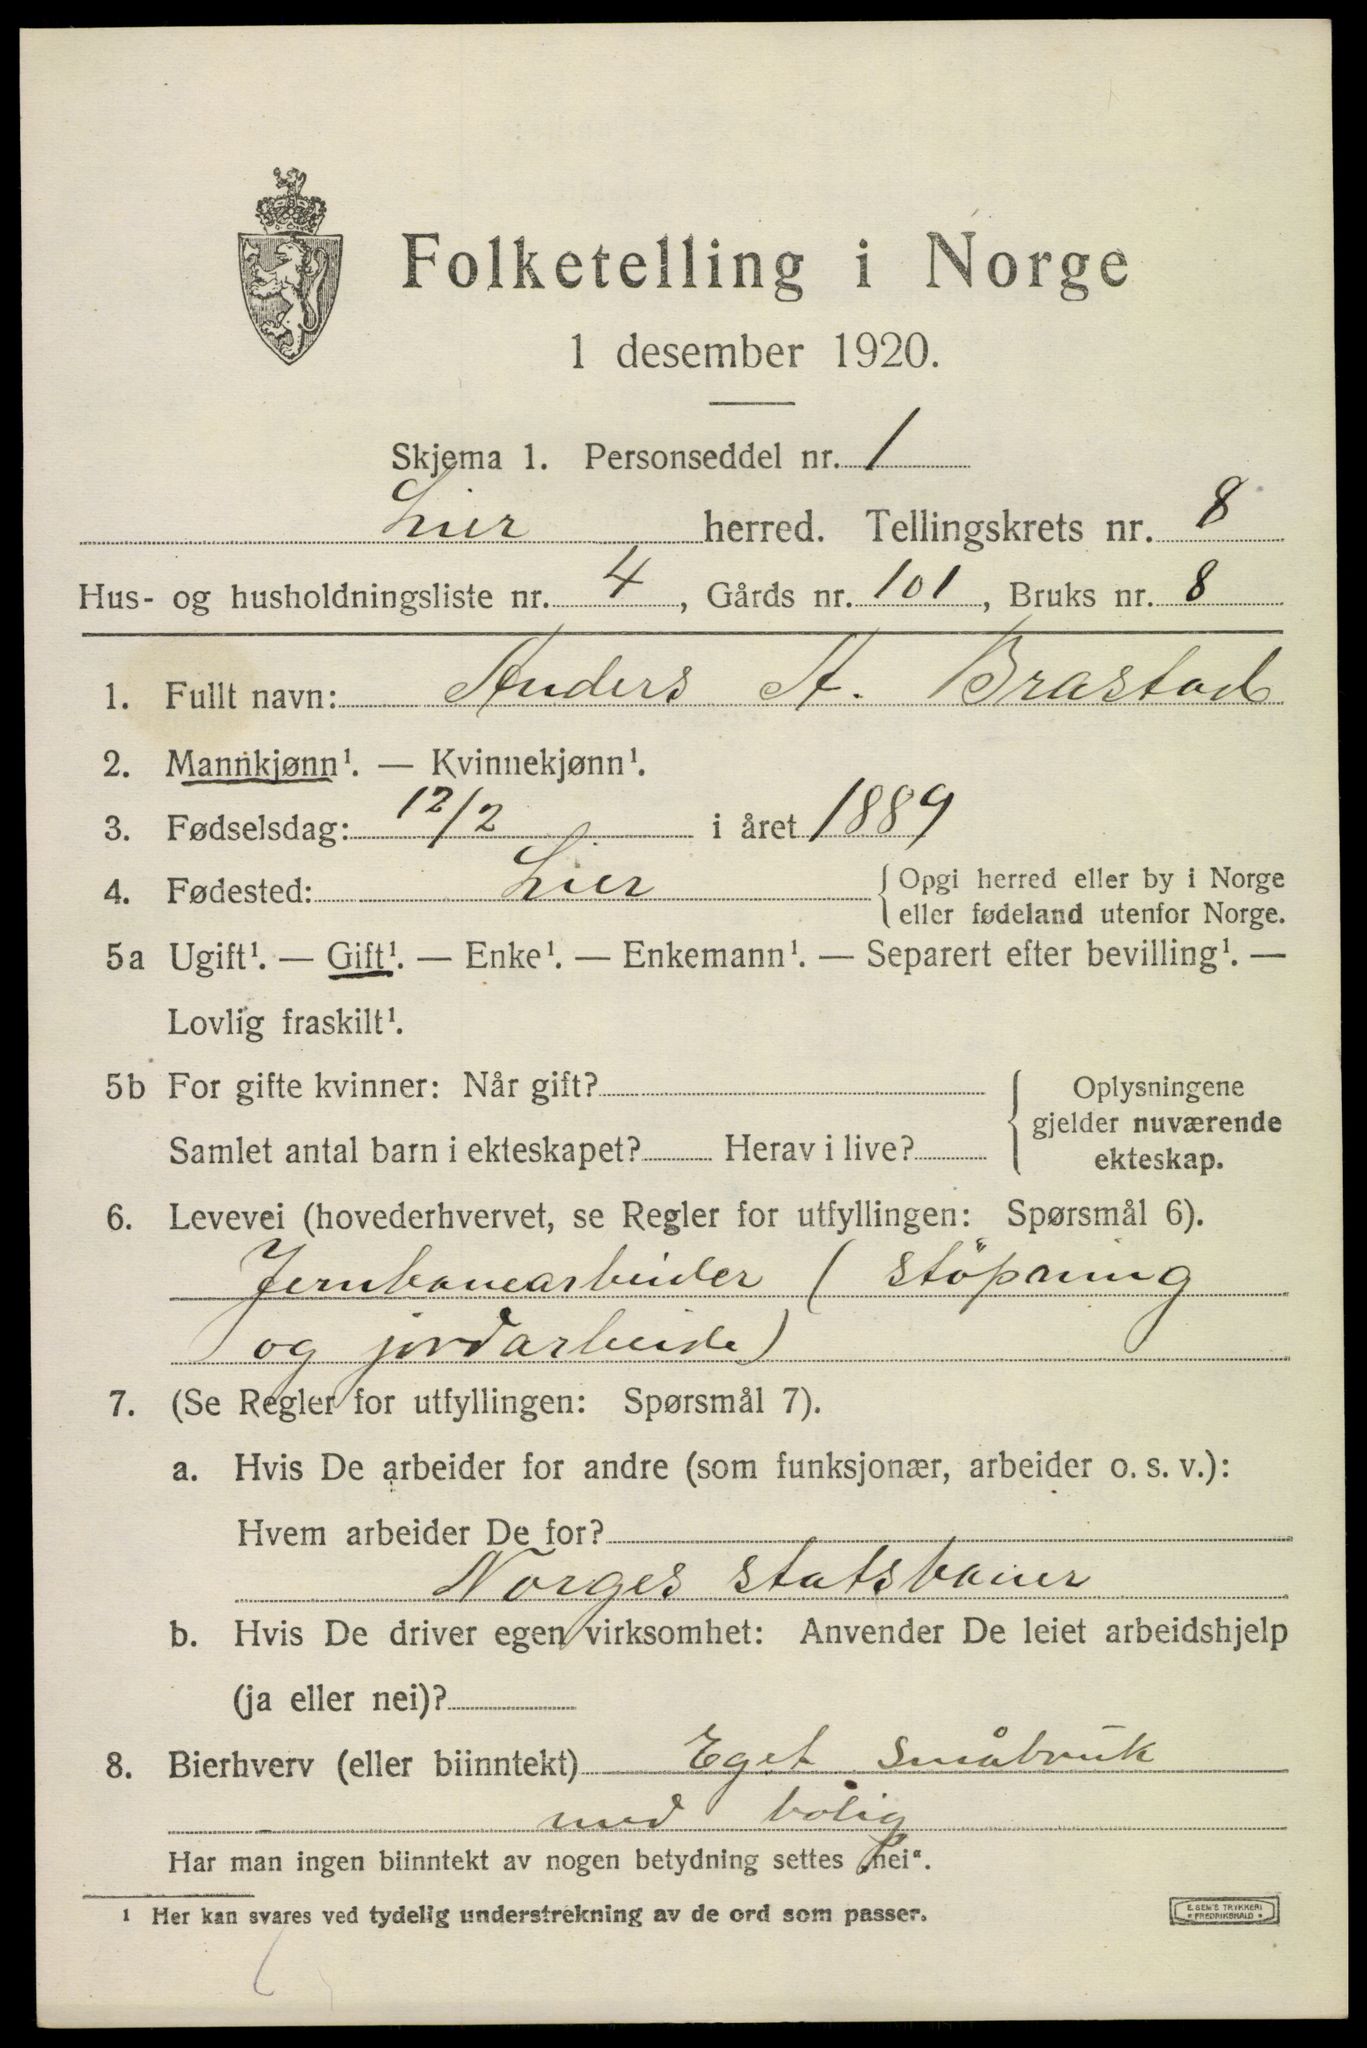 Folketelling i Norge
1 desember 1920.
Skjema 1. Personseddel nr. 1
Lier herred. Tellingskrets nr. 8
Hus- og husholdningsliste nr. 4, Gårds nr. 101, Bruks nr. 8
1. Fullt navn: Anders A. Brastad
2. Mannkjønn¹. — Kvinnekjønn¹.
3. Fødselsdag: 12/2 i året 1889
4. Fødested: Lier { Opgi herred eller by i Norge
eller fødeland utenfor Norge.
5a Ugift¹. — Gift¹. — Enke¹. — Enkemann¹. — Separert efter bevilling¹. —
Lovlig fraskilt¹.
5b For gifte kvinner: Når gift? { Oplysningene
gjelder nuværende
Samlet antal barn i ekteskapet? Herav i live? ekteskap.
6. Levevei (hovederhvervet, se Regler for utfyllingen: Spørsmål 6).
Jernbanearbeider (støpning
og jordarbeide)
7. (Se Regler for utfyllingen: Spørsmål 7).
a. Hvis De arbeider for andre (som funksjonær, arbeider o. s. v.):
Hvem arbeider De for?
Norges statsbaner
b. Hvis De driver egen virksomhet: Anvender De leiet arbeidshjelp
(ja eller nei)?
8. Bierhverv (eller biinntekt) Eget småbruk
med bolig
Har man ingen biinntekt av nogen betydning settes „nei“.
1 Her kan svares ved tydelig understrekning av de ord som passer.
E. SEM'S TRYKKERI
FREDRIKSHALD